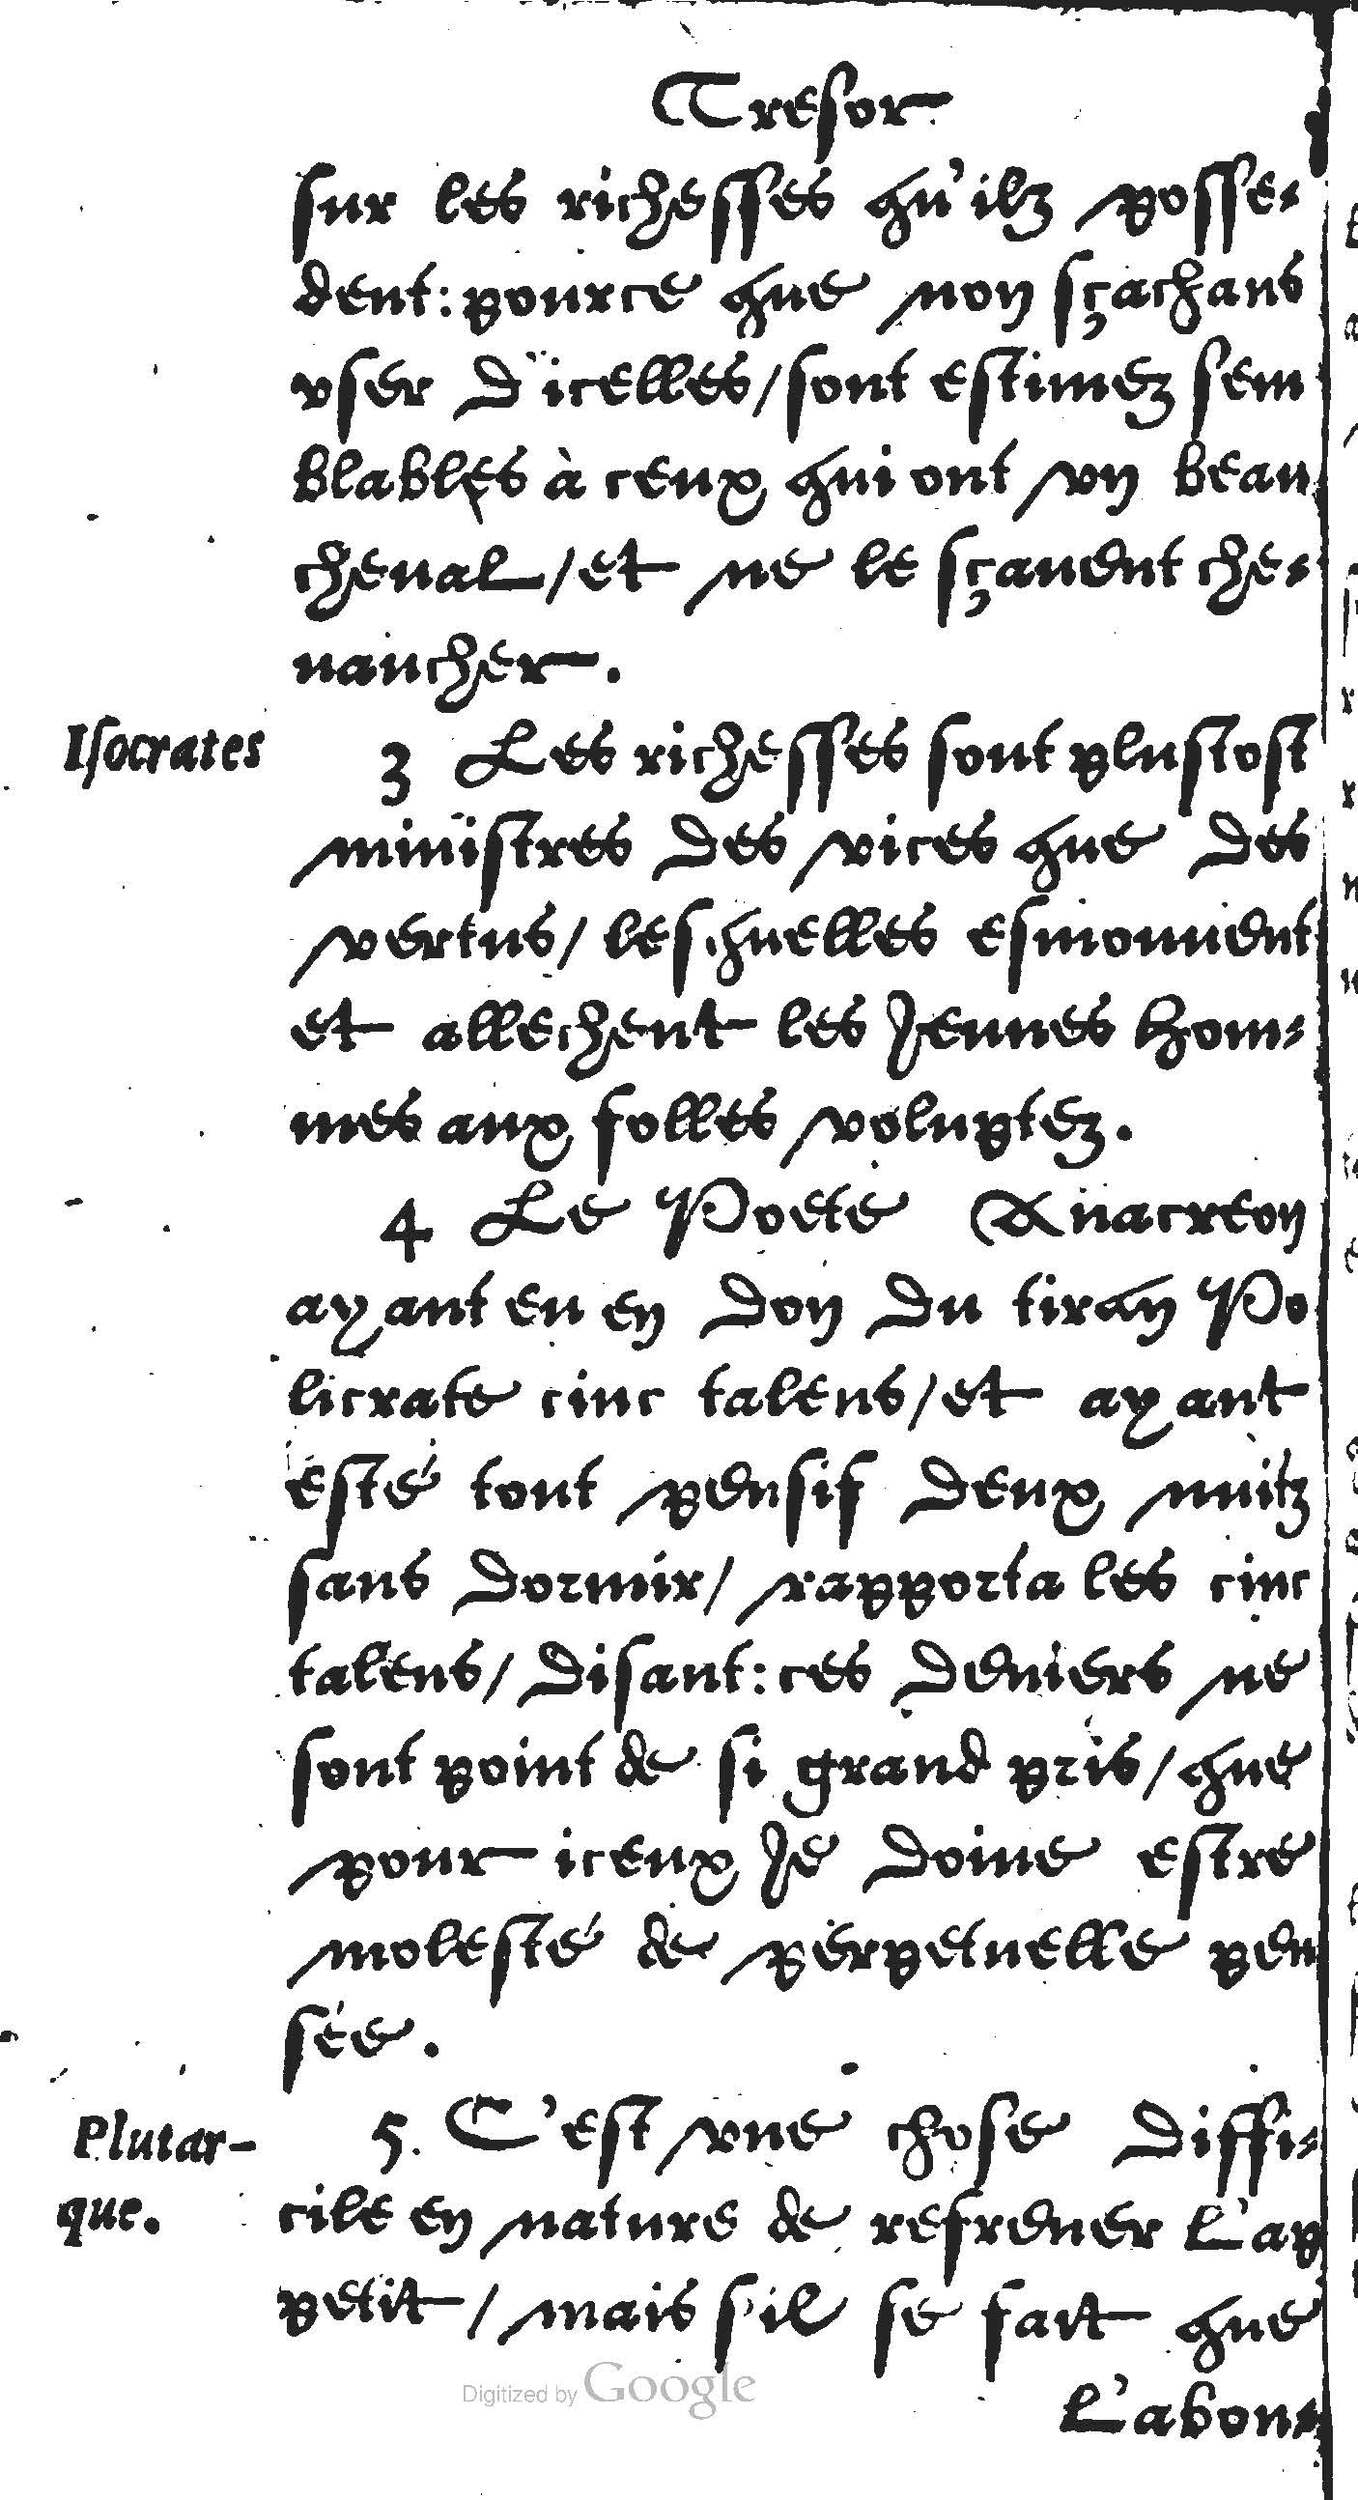 Tresor
sur les richesses qu'ilz posse-
dent: pource que non sçachans
vser d'icelles/ sont estimez sem
blables à ceux qui ont vn beau
cheual/ et ne le sçauent che-
uaucher.
Isocrates
3 Les richesses sont plustost
ministres des vices que des
vertus/ lesquelles esmouuent
et allechent les jeunes hom-
mes aux folles voluptez.
4 Le Poete Anacreon
ayant eu en don du tiran Po
licrate cinc talens/ et ayant
esté tout pensif deux nuitz
sans dormir/ rapporta les cinc
talens/ disant: ces deniers ne
sont point de si grand pris/ que
pour iceux je doiue estre
molesté de perpetuelle pen
sée.
Plutar-
que.
5. C'est vne chose diffi-
cile en nature de refrener l'ap
petit/ mais s'il se fait que
l'abon-
Digitized by Google